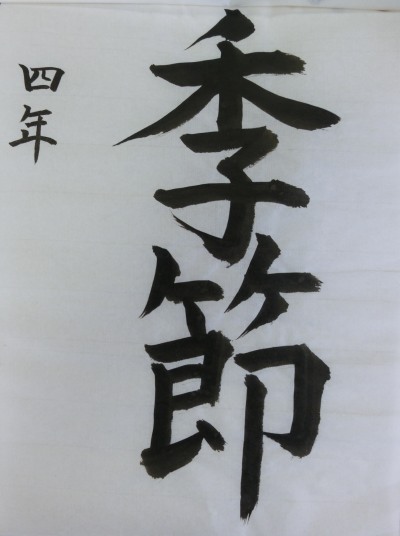 季節
四年